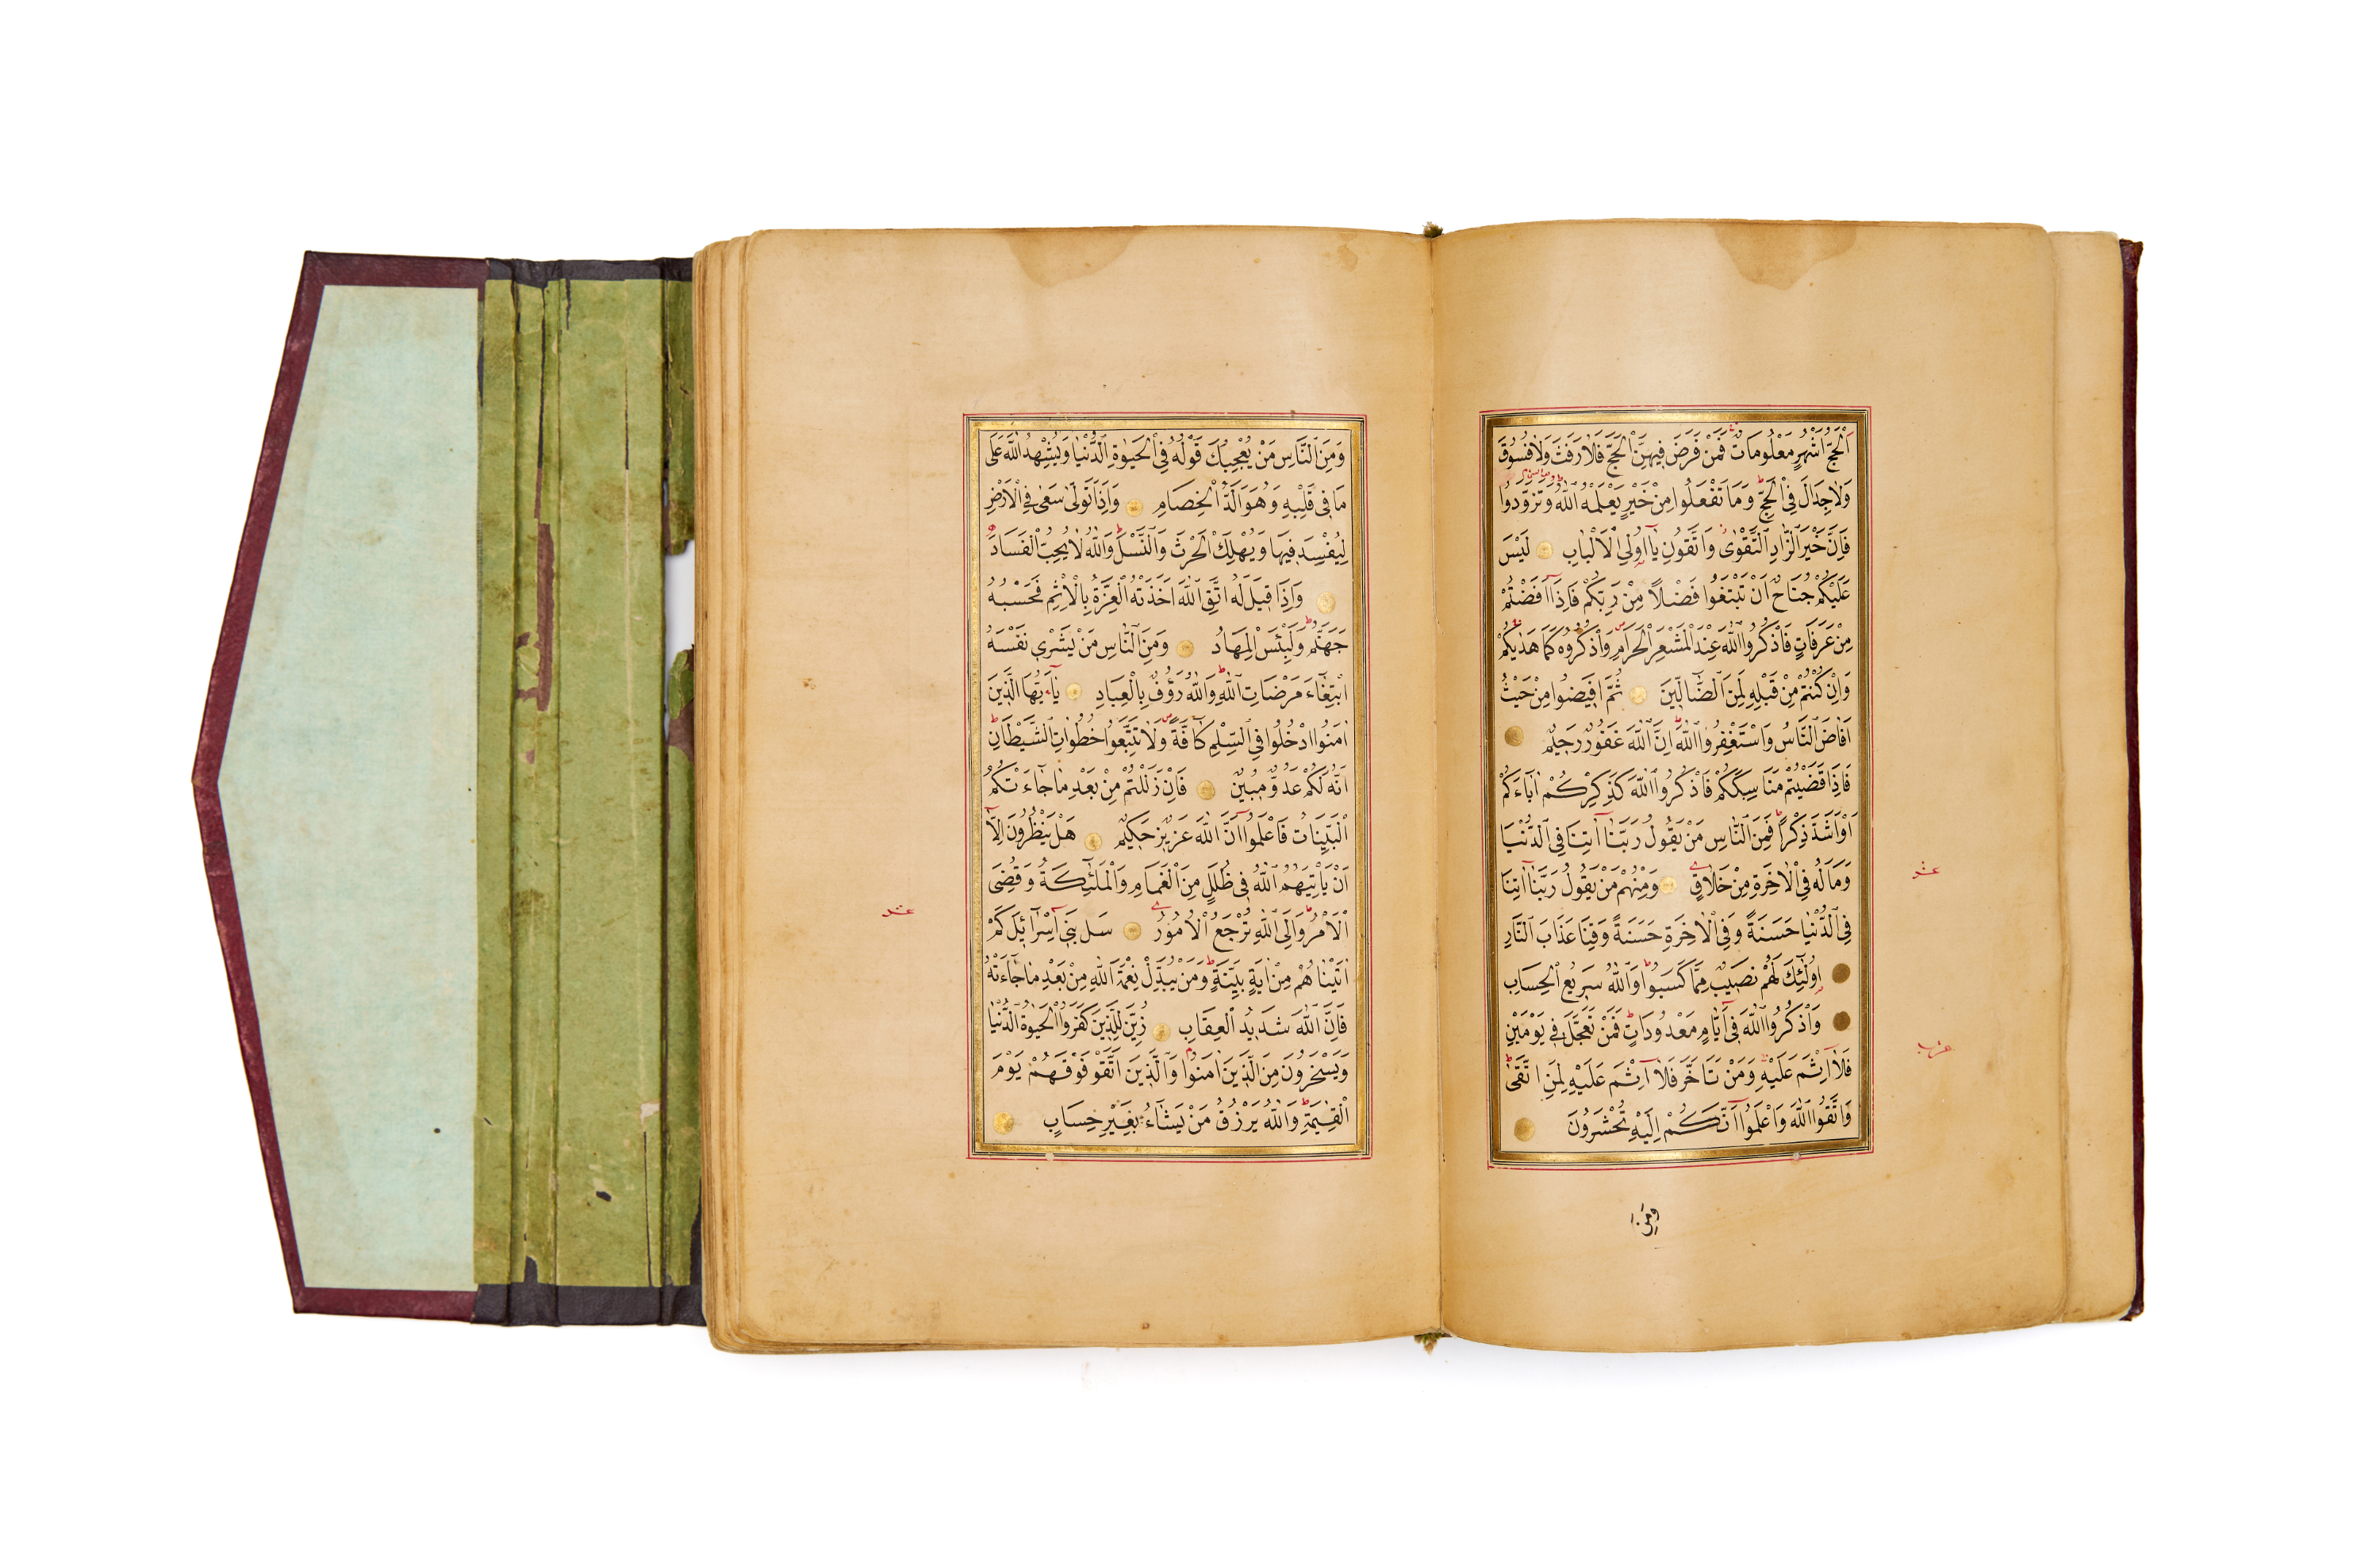 اَلْحَجُّ اَشْهُرٌ مَعْلُومَاتٌ فَمَنْ فَرَضَ فِيهِنَّ الْحَجَّ فَلَا رَفَثَ وَلَا فُسُوقَ
وَلَا جِدَالَ فِي الْحَجِّ وَمَا تَفْعَلُوا مِنْ خَيْرٍ يَعْلَمْهُ اللّٰهُ وَتَزَوَّدُوا
فَاِنَّ خَيْرَ الزَّادِ التَّقْوٰى وَاتَّقُونِ يَا اُولِي الْاَلْبَابِ لَيْسَ
عَلَيْكُمْ جُنَاحٌ اَنْ تَبْتَغُوا فَضْلًا مِنْ رَبِّكُمْ فَاِذَا اَفَضْتُمْ
مِنْ عَرَفَاتٍ فَاذْكُرُوا اللّٰهَ عِنْدَ الْمَشْعَرِ الْحَرَامِ وَاذْكُرُوهُ كَمَا هَدٰيكُمْ
وَاِنْ كُنْتُمْ مِنْ قَبْلِهِ لَمِنَ الضَّالِّينَ ثُمَّ اَفِيضُوا مِنْ حَيْثُ
اَفَاضَ النَّاسُ وَاسْتَغْفِرُوا اللّٰهَ اِنَّ اللّٰهَ غَفُورٌ رَحِيمٌ
فَاِذَا قَضَيْتُمْ مَنَاسِكَكُمْ فَاذْكُرُوا اللّٰهَ كَذِكْرِكُمْ اٰبَاءَكُمْ
اَوْ اَشَدَّ ذِكْرًا فَمِنَ النَّاسِ مَنْ يَقُولُ رَبَّنَا اٰتِنَا فِي الدُّنْيَا
وَمَا لَهُ فِي الْاٰخِرَةِ مِنْ خَلَاقٍ وَمِنْهُمْ مَنْ يَقُولُ رَبَّنَا اٰتِنَا
عشر
فِي الدُّنْيَا حَسَنَةً وَفِي الْاٰخِرَةِ حَسَنَةً وَقِنَا عَذَابَ النَّارِ
اُولٰئِكَ لَهُمْ نَصِيبٌ مِمَّا كَسَبُوا وَاللّٰهُ سَرِيعُ الْحِسَابِ
وَاذْكُرُوا اللّٰهَ فِي اَيَّامٍ مَعْدُودَاتٍ فَمَنْ تَعَجَّلَ فِي يَوْمَيْنِ
فَلَا اِثْمَ عَلَيْهِ وَمَنْ تَاَخَّرَ فَلَا اِثْمَ عَلَيْهِ لِمَنِ اتَّقٰى
وَاتَّقُوا اللّٰهَ وَاعْلَمُوا اَنَّكُمْ اِلَيْهِ تُحْشَرُونَ
وَمِنَ
وَمِنَ النَّاسِ مَنْ يُعْجِبُكَ قَوْلُهُ فِي الْحَيٰوةِ الدُّنْيَا وَيُشْهِدُ اللّٰهَ عَلٰى
مَا فِي قَلْبِهِ وَهُوَ اَلَدُّ الْخِصَامِ وَاِذَا تَوَلّٰى سَعٰى فِي الْاَرْضِ
لِيُفْسِدَ فِيهَا وَيُهْلِكَ الْحَرْثَ وَالنَّسْلَ وَاللّٰهُ لَا يُحِبُّ الْفَسَادَ
وَاِذَا قِيلَ لَهُ اتَّقِ اللّٰهَ اَخَذَتْهُ الْعِزَّةُ بِالْاِثْمِ فَحَسْبُهُ
جَهَنَّمُ وَلَبِئْسَ الْمِهَادُ وَمِنَ النَّاسِ مَنْ يَشْرِي نَفْسَهُ
ابْتِغَاءَ مَرْضَاتِ اللّٰهِ وَاللّٰهُ رَؤُفٌ بِالْعِبَادِ يَا اَيُّهَا الَّذِينَ
اٰمَنُوا ادْخُلُوا فِي السِّلْمِ كَافَّةً وَلَا تَتَّبِعُوا خُطُوَاتِ الشَّيْطَانِ
اِنَّهُ لَكُمْ عَدُوٌّ مُبِينٌ فَاِنْ زَلَلْتُمْ مِنْ بَعْدِ مَا جَاءَتْكُمُ
الْبَيِّنَاتُ فَاعْلَمُوا اَنَّ اللّٰهَ عَزِيزٌ حَكِيمٌ هَلْ يَنْظُرُونَ اِلَّا
اَنْ يَاْتِيَهُمُ اللّٰهُ فِي ظُلَلٍ مِنَ الْغَمَامِ وَالْمَلٰئِكَةُ وَقُضِيَ
الْاَمْرُ وَاِلَى اللّٰهِ تُرْجَعُ الْاُمُورُ سَلْ بَنِي اِسْرَائِلَ كَمْ
عشر
اٰتَيْنَاهُمْ مِنْ اٰيَةٍ بَيِّنَةٍ وَمَنْ يُبَدِّلْ نِعْمَةَ اللّٰهِ مِنْ بَعْدِ مَا جَاءَتْهُ
فَاِنَّ اللّٰهَ شَدِيدُ الْعِقَابِ زُيِّنَ لِلَّذِينَ كَفَرُوا الْحَيٰوةُ الدُّنْيَا
وَيَسْخَرُونَ مِنَ الَّذِينَ اٰمَنُوا وَالَّذِينَ اتَّقَوْا فَوْقَهُمْ يَوْمَ
الْقِيٰمَةِ وَاللّٰهُ يَرْزُقُ مَنْ يَشَاءُ بِغَيْرِ حِسَابٍ